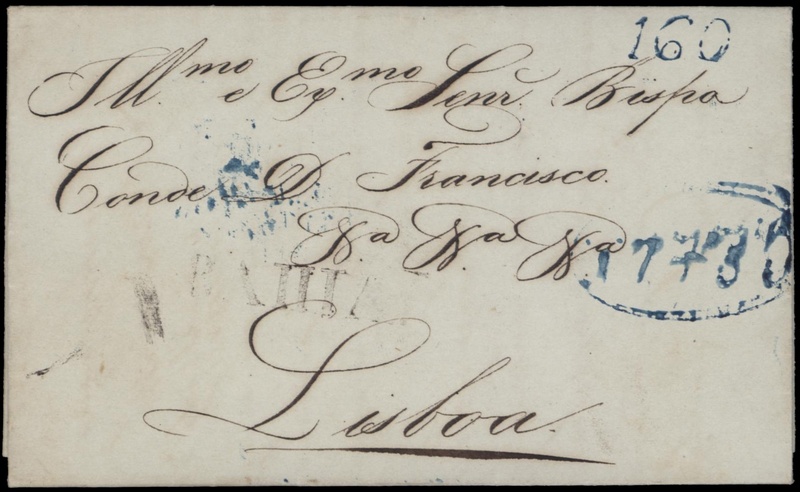 160
Ill.mo e Ex.mo Senr. Bispo
Conde D Francisco.
&.a &.a &.a
BAHIA
Lisboa.